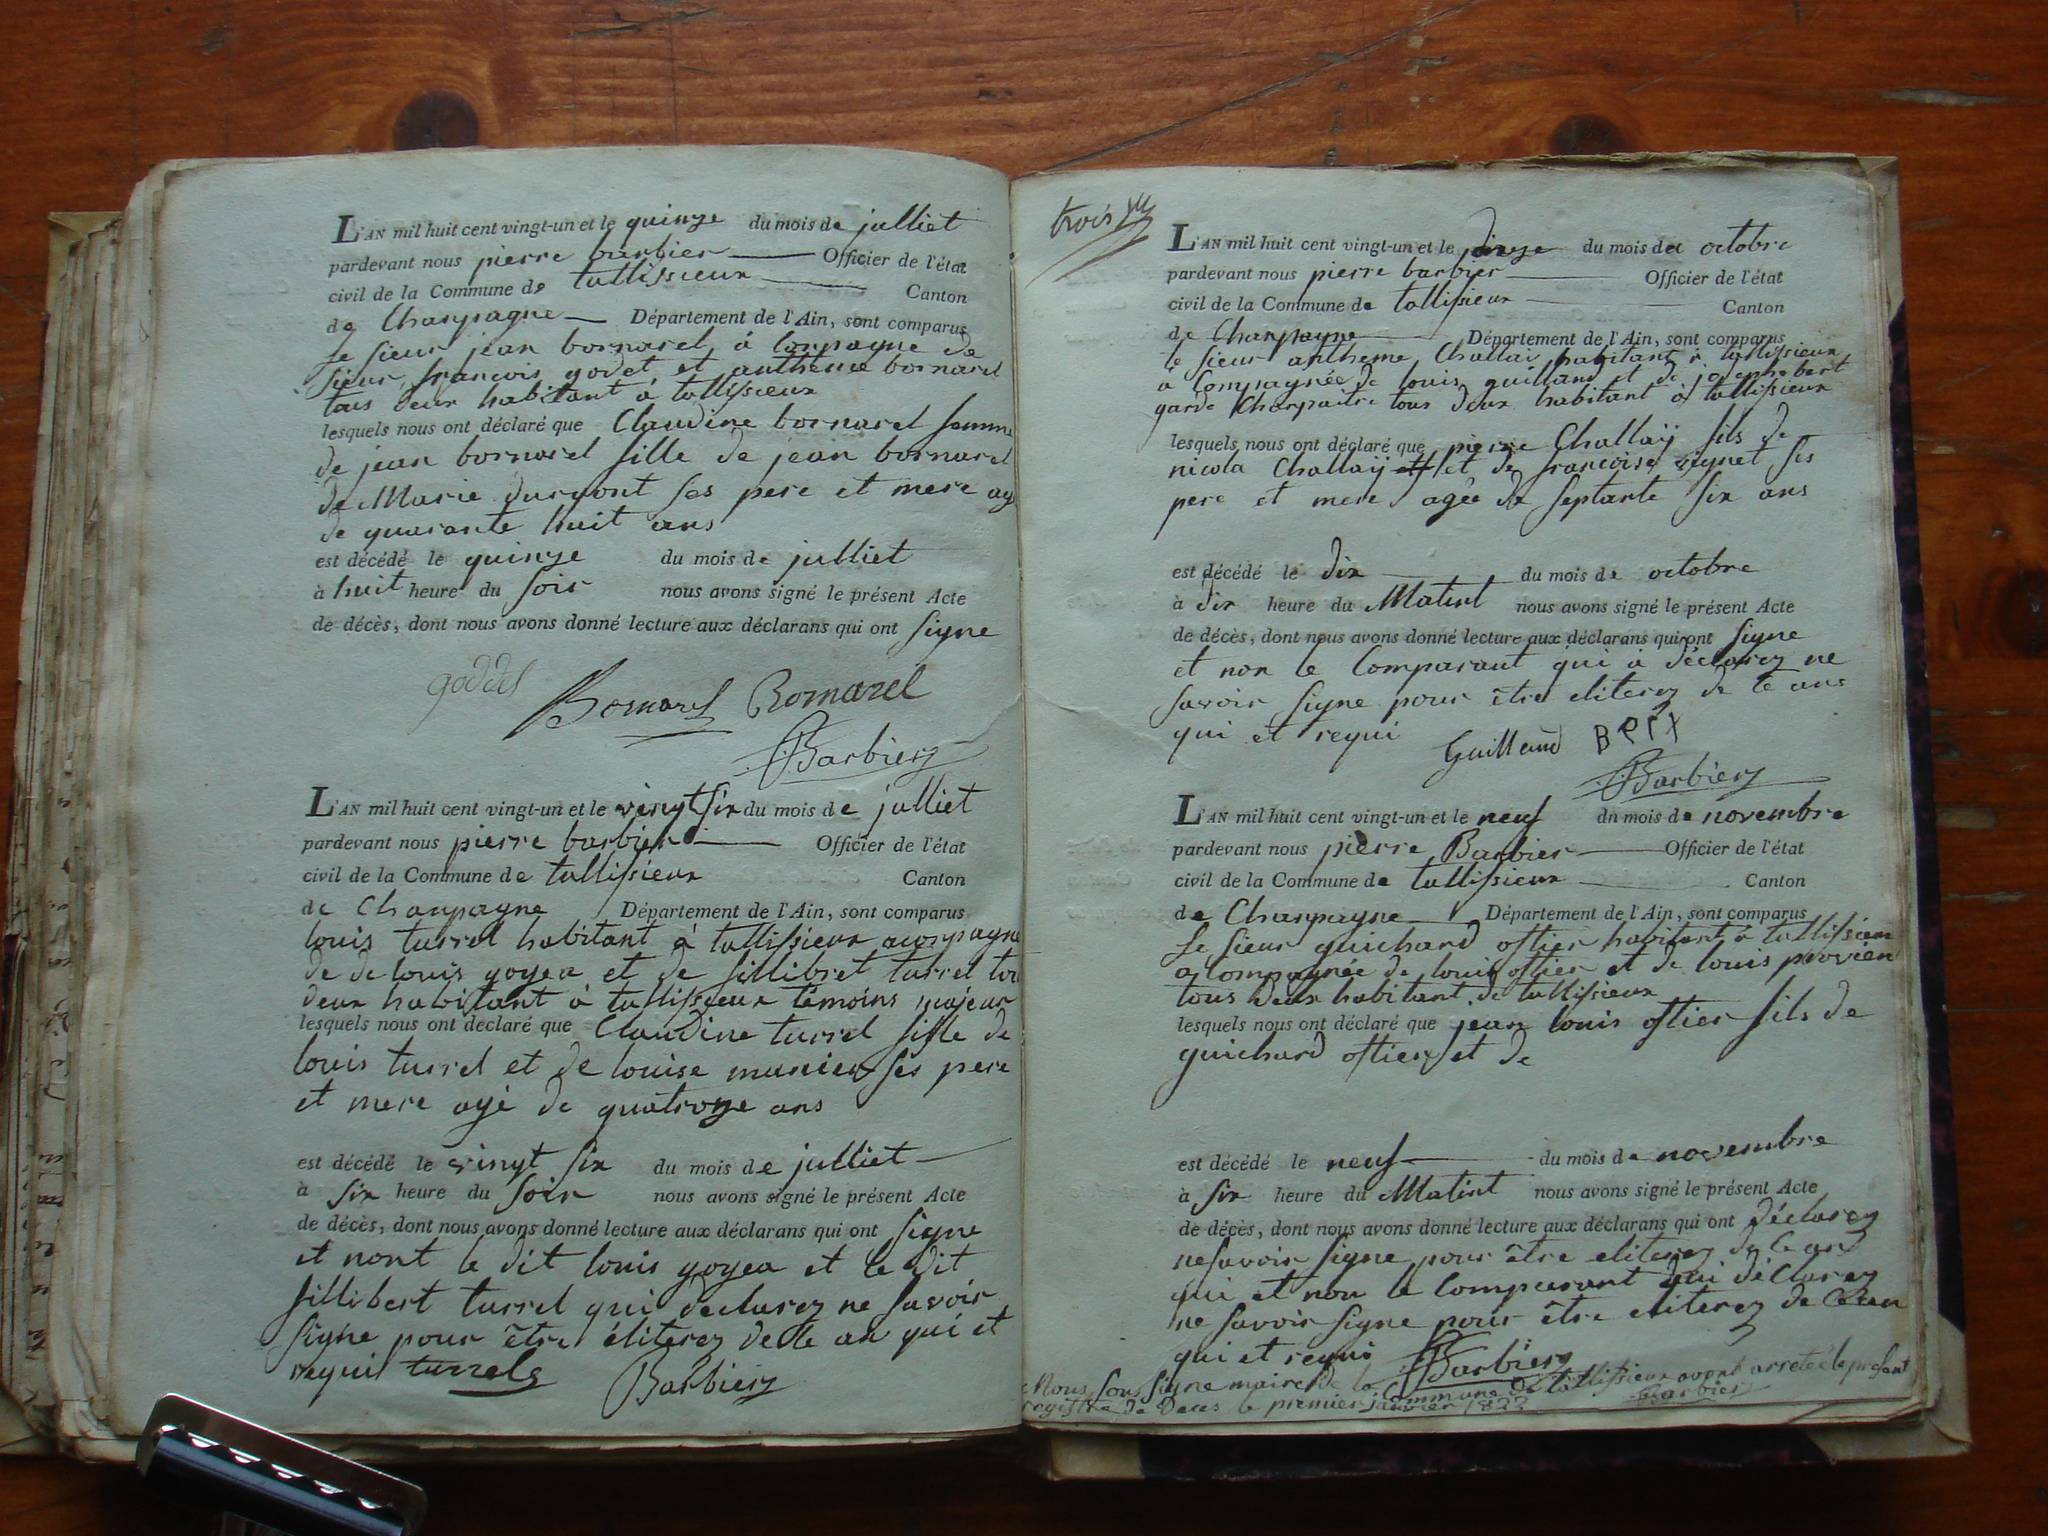 L'AN mil huit cent vingt-un et le quinze du mois de julliet
pardevant nous pierre barbier Officier de l'état
civil de la Commune de tallissieux Canton
de Chanpagne Département de l'Ain, sont comparus
le sieur jean bornarel à conpagne de
sieur francois godet et anthelme bornarel
tous deux habitant à tallissieux
lesquels nous ont déclaré que Claudine bornarel femme
de jean bornarel fille de jean bornarel
de Marie durmont ses pere et mere ag
de quarante huit ans
est décédé le quinze du mois de julliet
à huit heure du soir nous avons signé le présent Acte
de décès, dont nous avons donné lecture aux déclarans qui ont signe
goddet
Bornarel Bornarel
Barbier
L'AN mil huit cent vingt-un et le vingt six du mois de julliet
pardevant nous pierre barbier Officier de l'état
civil de la Commune de tallissieux Canton
de Chanpagne Département de l'Ain, sont comparus
louis turrel habitant à tallissieux aconpagne
de de louis goyea et de fillibret turrel tou
deux habitant à tallissieux témoins majeur
lesquels nous ont déclaré que Claudine turrel fille de
louis turrel et de louise munier ses pere
et mere agé de quatroze ans
est décédé le vingt six du mois de julliet
à six heure du soir nous avons signé le présent Acte
de décès, dont nous avons donné lecture aux déclarans qui ont signe
et nont le dit louis goyea et le dit
fillibert turrel qui declarez ne savoir
signe pour être éliterez de le an qui et
requis turrel
Barbier
trois
L'AN mil huit cent vingt-un et le du mois de octobre
pardevant nous pierre barbier Officier de l'état
civil de la Commune de tallissieux Canton
de Chanpagne Département de l'Ain, sont comparus
le sieur antheme Challai habitant à tallissieux
à Compagnée de louis guilland et de joseph bert
garde Chanpaitre tous deux habitant à tallissieux
lesquels nous ont déclaré que pierre Challaÿ fils de
nicola Challaÿ et de francoise ses
pere et mere agée de septante six ans
est décédé le dix du mois de octobre
à dix heure du Matint nous avons signé le présent Acte
de décès, dont nous avons donné lecture aux déclarans qui ont signe
et non le Comparant qui à déclarez ne
savoir signe pour être eliterez de le ans
qui et requi
Guilland
Barbier
L'AN mil huit cent vingt-un et le neuf du mois de novembre
pardevant nous pierre Barbier Officier de l'état
civil de la Commune de tallissieux Canton
de Chanpagne Département de l'Ain, sont comparus
le sieur guichard ostier habitant à tallissieux
a Compagnée de louis ostier et de louis
tous deux habitant de tallissieux
lesquels nous ont déclaré que jean louis ostier fils de
guichard ostier et de
est décédé le neuf du mois de novembre
à six heure du Matint nous avons signé le présent Acte
de décès, dont nous avons donné lecture aux déclarans qui ont déclarez
ne savoir signe pour être eliterez de le an
qui et non le Comparant qui déclarez
ne savoir signe pour être eliterez de
qui et requi Barbier
Nous sous signe maire de la Commune de tallissieux avont arreté le présant
registre de Deces le premier janvier 1822 Barbier